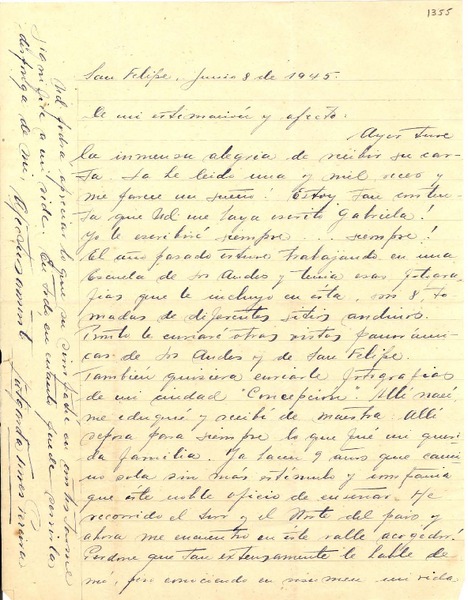 1355
San Felipe, Junio 8 de 1945.
De mi estimación y afecto:
Ayer tuve
la inmensa alegria de recibir su car-
ta. La he leído una y mil veces y
me parece un sueño! Estoy tan conten-
ta que Ud me haya escrito Gabriela!
Yo le escribiré siempre... siempre!
El año pasado estuve trabajando en una
Escuela de Los Andes y tenía esas fotogra-
fias que le incluyo en ésta, son 8, to-
madas de diferentes sitios andinos.
Pronto le enviaré otras vistas panorámi-
cas de Los Andes y de San Felipe.
También quisiera enviarle fotografias
de mi ciudad "Concepcion". Allí nací,
me eduqué y recibí de maestra. Allí
reposa para siempre lo que fue mi queri-
da familia. Ya hacen 9 años que cami-
no sola sin más estímulo y compañia
que éste noble oficio de enseñar. He
recorrido el Sur y el Norte del país y
ahora me encuentro en este valle acogedor.
Perdone que tan extensamente le hable de
mi, pero conociendo en resumen mi vida
Ud podrá apreciar lo que su simpatía en
a mi vida. En todo en cuanto pueda servirlas
disponga de mi. Afectuosamente